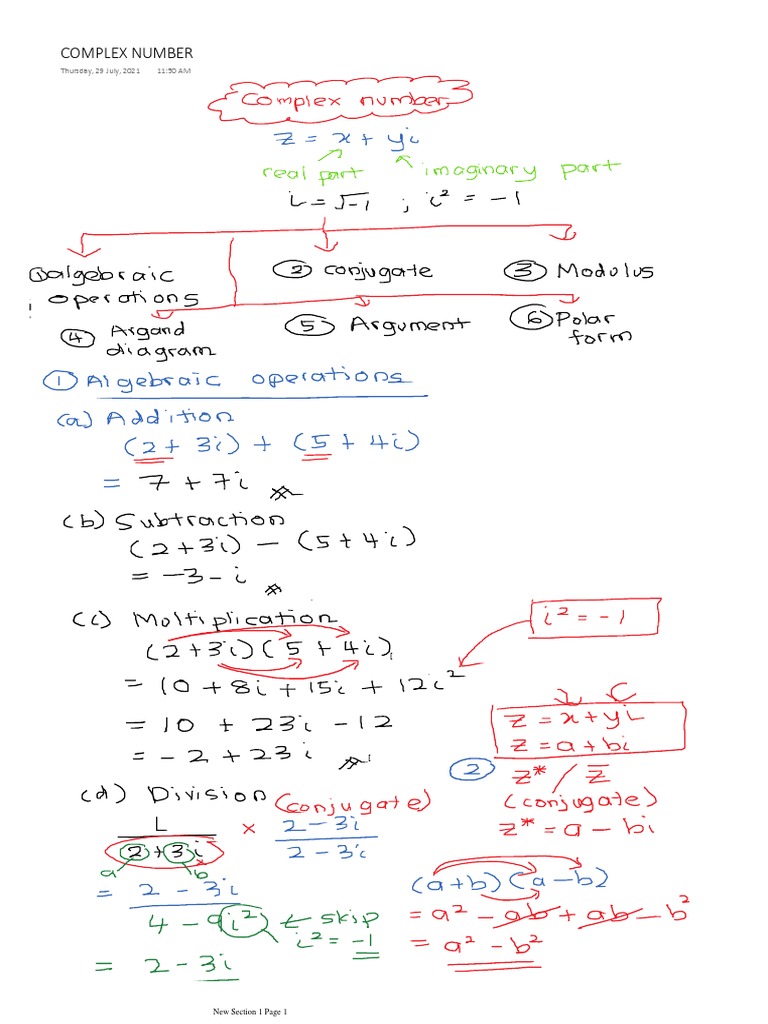 COMPLEX NUMBER
Thursday, 29 July, 2021 11:30 AM
Complex number
z = x + yi
real part imaginary part
i = √-1 ; i² = -1
① algebraic operations
② conjugate
③ Modulus
④ Argand diagram
⑤ Argument
⑥ Polar form
① Algebraic operations
(a) Addition
(2 + 3i) + (5 + 4i)
= 7 + 7i
(b) Subtraction
(2 + 3i) - (5 + 4i)
= -3 - i
(c) Moltiplication
(2 + 3i)(5 + 4i)
i² = -1
= 10 + 8i + 15i + 12i²
= 10 + 23i - 12
= -2 + 23i
(d) Division (conjugate)
1/(2 + 3i) × (2 - 3i)/(2 - 3i)
a b
= (2 - 3i)/(4 - 9i²) ← skip
i² = -1
= 2 - 3i
z = x + yi
z = a + bi
② z* / z̅
(conjugate)
z* = a - bi
(a + b)(a - b)
= a² - ab + ab - b²
= a² - b²
New Section 1 Page 1